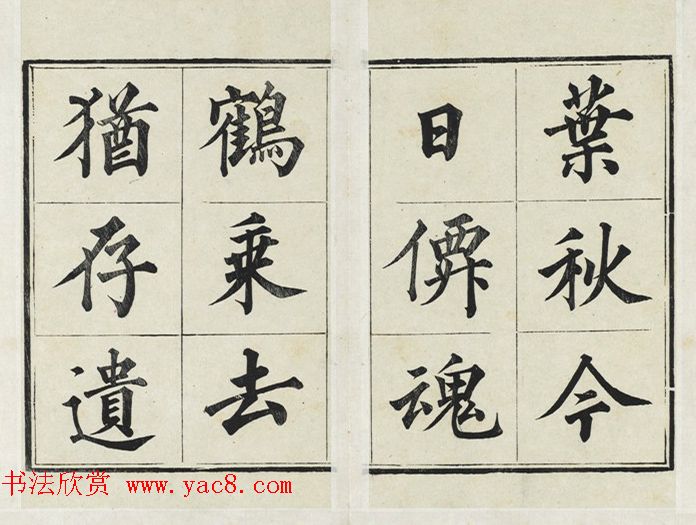 葉秋今
日僲魂
鶴乗去
猶存遺
书法欣赏 www.yac8.com